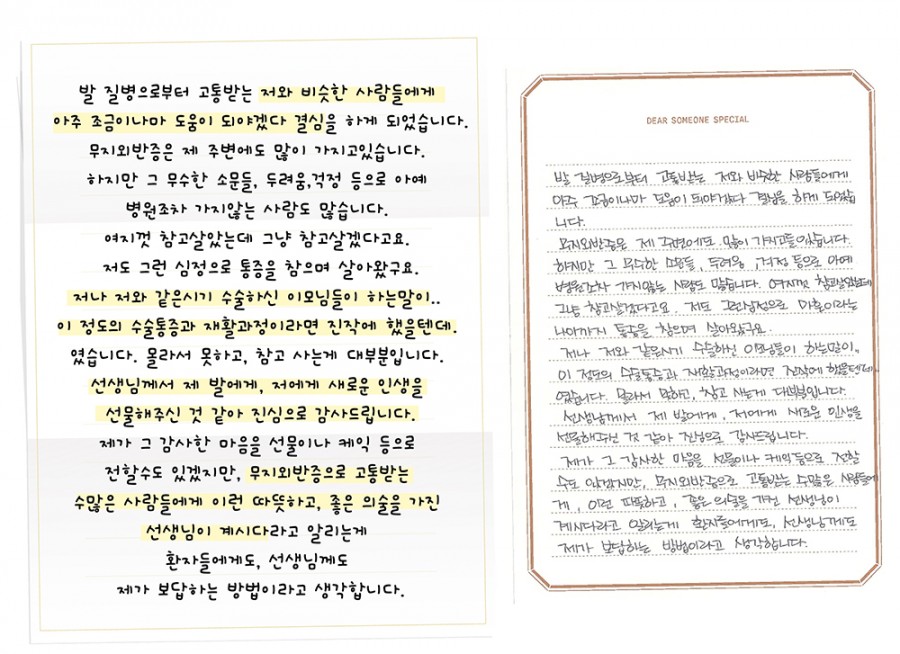 발 질병으로부터 고통받는 저와 비슷한 사람들에게
아주 조금이나마 도움이 되야겠다 결심을 하게 되었습니다.
무지외반증은 제 주변에도 많이 가지고있습니다.
하지만 그 무수한 소문들, 두려움,걱정 등으로 아예
병원조차 가지않는 사람도 많습니다.
여지껏 참고살았는데 그냥 참고살겠다고요.
저도 그런 심정으로 통증을 참으며 살아왔구요.
저나 저와 같은시기 수술하신 이모님들이 하는말이..
이 정도의 수술통증과 재활과정이라면 진작에 했을텐데.
였습니다. 몰라서 못하고, 참고 사는게 대부분입니다.
선생님께서 제 발에게, 저에게 새로운 인생을
선물해주신 것 같아 진심으로 감사드립니다.
제가 그 감사한 마음을 선물이나 케익 등으로
전할수도 있겠지만, 무지외반증으로 고통받는
수많은 사람들에게 이런 따뜻하고, 좋은 의술을 가진
선생님이 계시다라고 알리는게
환자들에게도, 선생님께도
제가 보답하는 방법이라고 생각합니다.
DEAR SOMEONE SPECIAL
발 질병으로부터 고통받는 저와 비슷한 사람들에게
아주 조금이나마 도움이 되야겠다 결심을 하게 되었습
니다.
무지외반증은 제 주변에도 많이 가지고들있습니다.
하지만 그 무수한 소문들, 두려움, 걱정 등으로 아예
병원조차 가지않는 사람도 많습니다. 여지껏 참고살았는데
그냥 참고살겠다고요. 저도 그런심정으로 마흔이라는
나이까지 통증을 참으며 살아왔구요.
저나 저와 같은시기 수술하신 이모님들이 하는말이..
이 정도의 수술통증과 재활과정이라면 진작에 했을텐데.
였습니다. 몰라서 못하고, 참고 사는게 대부분입니다.
선생님께서 제 발에게, 저에게 새로운 인생을
선물해주신 것 같아 진심으로 감사드립니다.
제가 그 감사한 마음을 선물이나 케익등으로 전할
수도 있겠지만, 무지외반증으로 고통받는 수많은 사람들에
게, 이런 따뜻하고, 좋은 의술을 가진 선생님이
계시다라고 알리는게 환자들에게도, 선생님께도
제가 보답하는 방법이라고 생각합니다.